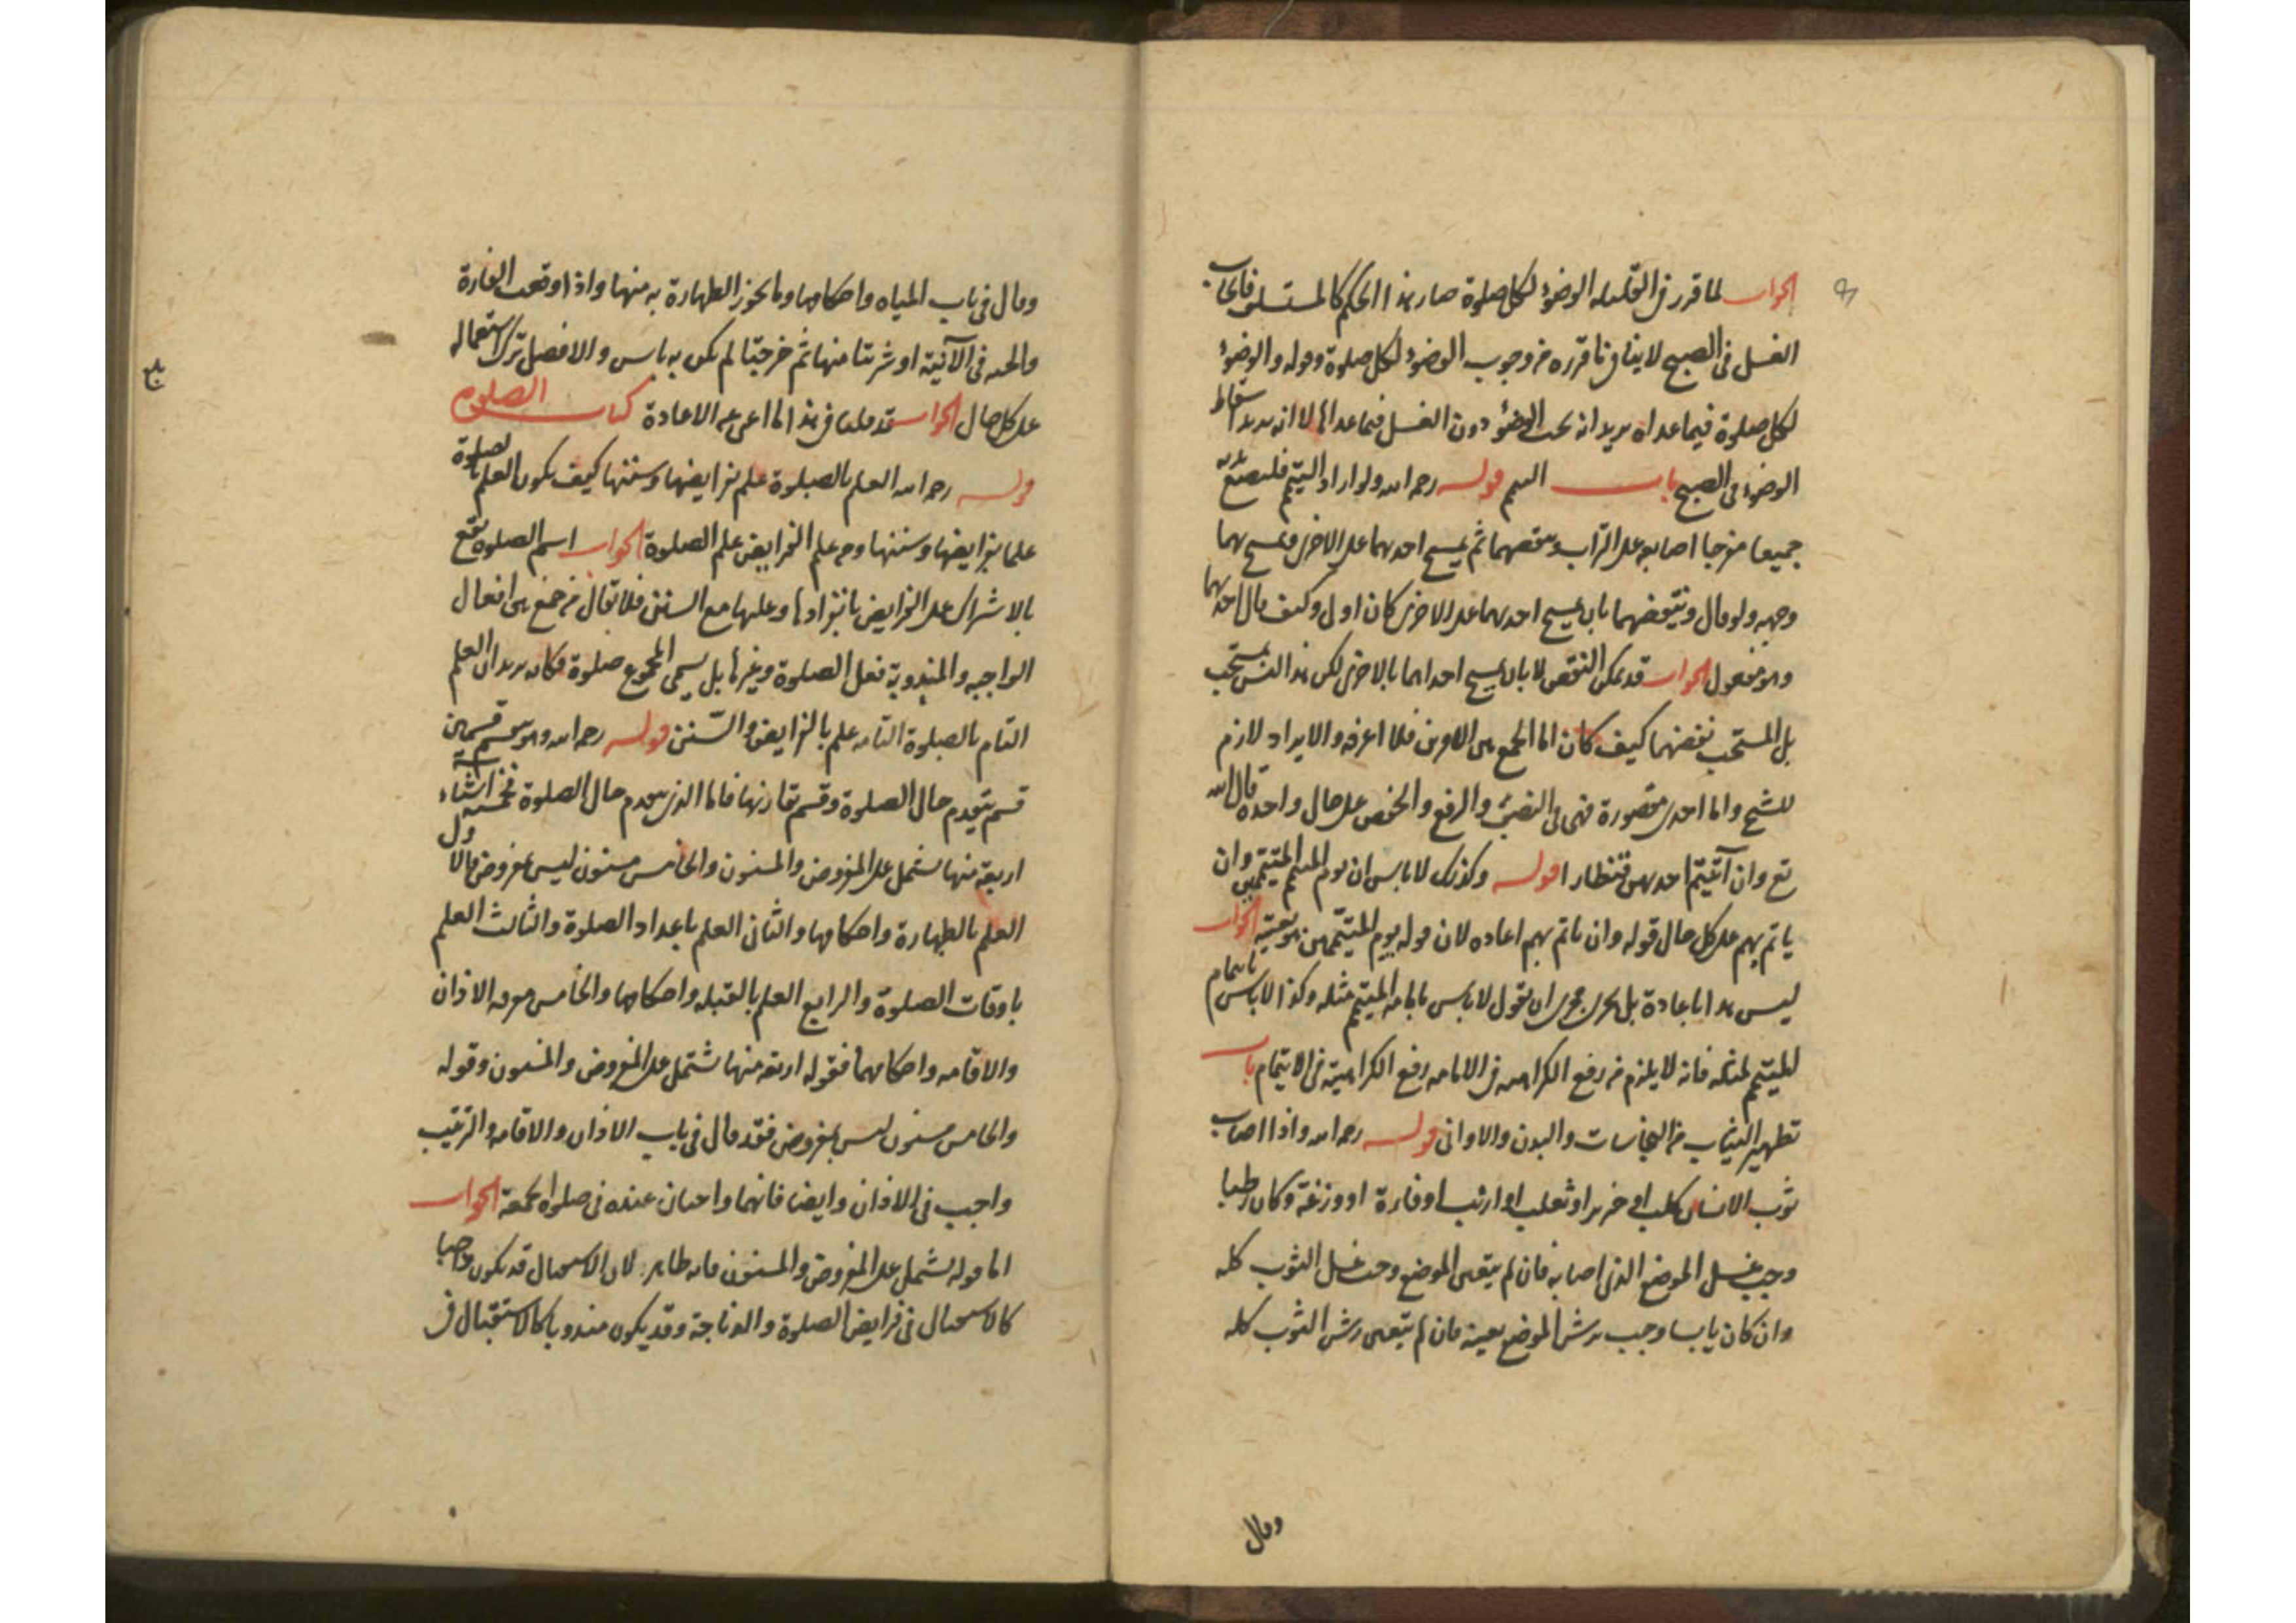 الجواب لما قرر في القليله الوضوء لكل صلوة صار هذا الحكم كالمستلم فايجاب
الغسل في الصبح لا ينافي ما قرره من وجوب الوضوء لكل صلوة وقوله والوضوء
لكل صلوة فيما عداه يريد انه يجب الوضوء دون الغسل فيما عداه لا انه يريد اسقاط
الوضوء في الصبح باب التيمم قوله رحمه الله ولو اراد التيمم فليضع يديه
جميعا مفرجا اصابعه على التراب وينفضهما ثم يمسح احديهما على الاخرى ويمسح بهما
وجهه ولو قال وينفضهما بان يمسح احديهما على الاخرى كان اولى وكيف قال احديهما
وهو مفعول الجواب قد يمكن النفض لا بان يمسح احداهما بالاخرى لكن هذا ليس بمستحب
بل المستحب نفضهما كيف كان اما الجمع بين الامرين فلا اعرفه والايراد لازم
للشيخ واما احدى مقصورة فهي في النصب والرفع والخفض على حال واحدة قال الله
تع وان آتيتم احديهن قنطارا قوله وكذلك لا باس ان يوم المتيمم المتيممين وان
ياتم بهم على كل حال قوله وان ياتم بهم اعاده لان قوله يوم المتيممين هو بعينه الجواب
ليس هذا اعادة بل يجري مجرى ان يقول لا باس بامامه المتيمم مثله وكذا لا باس بايتمام
المتيمم لمثله فانه لا يلزم من رفع الكراهيه في الامامه رفع الكراهية في الايتمام باب
تطهير الثياب من النجاسات والبدن والاواني قوله رحمه الله واذا اصاب
ثوب الانسان كلب او خنزير او ثعلب او ارنب او فارة او وزغة وكان رطبا
وجب غسل الموضع الذي اصابه فان لم يتعين الموضع وجب غسل الثوب كله
وان كان يابسا وجب رش الموضع بعينه فان لم يتعين رش الثوب كله
وقال
وقال في باب المياه واحكامها وما يجوز الطهارة به منها واذا وقعت الفارة
والحيه في الآنية او شربتا منها ثم خرجتا لم يكن به باس والافضل ترك استعماله
على كل حال الجواب قد كتاب الصلوة
قوله رحمه الله العلم بالصلوة علم بفرايضها وسننها كيف يكون العلم بالصلوة
علما بفرايضها وسننها ومن علم الفرايض علم الصلوة الجواب اسم الصلوة يقع
بالاشتراك على الفرايض بانفرادها وعليها مع السنن فلا يقال من جمع بين افعال
الواجبه والمندوبة فعل الصلوة وغيرها بل يسمى المجموع صلوة فكانه يريد ان العلم
التام بالصلوة التامه علم بالفرايض والسنن قوله رحمه الله وهو ينقسم قسمين
قسم يتقدم حال الصلوة وقسم يقارنها فاما الذي يتقدم حال الصلوة فخمسة اشياء
اربعة منها يشتمل على المفروض والمسنون والخامس مسنون ليس بمفروض فالاول
العلم بالطهارة واحكامها والثاني العلم باعداد الصلوة والثالث العلم
باوقات الصلوة والرابع العلم بالقبله واحكامها والخامس معرفه الاذان
والاقامه واحكامهما فقوله اربعه منها تشتمل على المفروض والمسنون وقوله
والخامس مسنون ليس بمفروض فقد قال في باب الاذان والاقامه والترتيب
واجب في الاذان وايضا فانهما واجبان عنده في صلوة الجمعة الجواب
اما قوله يشتمل على المفروض والمسنون فانه ظاهر لان الاستقبال قد يكون واجبا
كالاستقبال في فرايض الصلوة والذباحة وقد يكون مندوبا كالاستقبال في